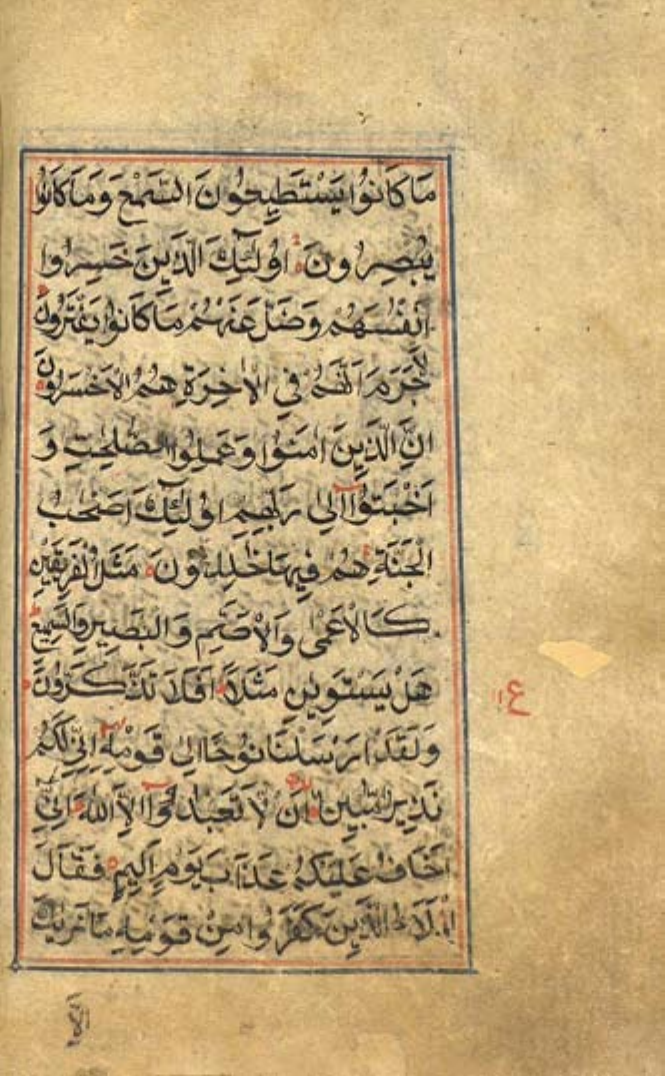 مَا كَانُوا يَسْتَطِيعُونَ السَّمْعَ وَمَا كَانُوا
يُبْصِرُونَ اُولٰٓئِكَ الَّذِينَ خَسِرُوا
اَنْفُسَهُمْ وَضَلَّ عَنْهُمْ مَا كَانُوا يَفْتَرُونَ
لَا جَرَمَ اَنَّهُمْ فِي الْاٰخِرَةِ هُمُ الْاَخْسَرُونَ
اِنَّ الَّذِينَ اٰمَنُوا وَعَمِلُوا الصّٰلِحٰتِ وَ
اَخْبَتُوْٓا اِلٰى رَبِّهِمْ اُولٰٓئِكَ اَصْحٰبُ
الْجَنَّةِ هُمْ فِيهَا خٰلِدُونَ مَثَلُ الْفَرِيقَيْنِ
كَالْاَعْمٰى وَالْاَصَمِّ وَالْبَصِيرِ وَالسَّمِيعِ
هَلْ يَسْتَوِيٰنِ مَثَلًا اَفَلَا تَذَكَّرُونَ
وَلَقَدْ اَرْسَلْنَا نُوحًا اِلٰى قَوْمِهِ اِنِّي لَكُمْ
نَذِيرٌ مُبِينٌ اَنْ لَا تَعْبُدُوْٓا اِلَّا اللّٰهَ اِنِّيٓ
اَخَافُ عَلَيْكُمْ عَذَابَ يَوْمٍ اَلِيمٍ فَقَالَ
الْمَلَاُ الَّذِينَ كَفَرُوا مِنْ قَوْمِهِ مَا نَرٰيكَ
اِلَّا
ع